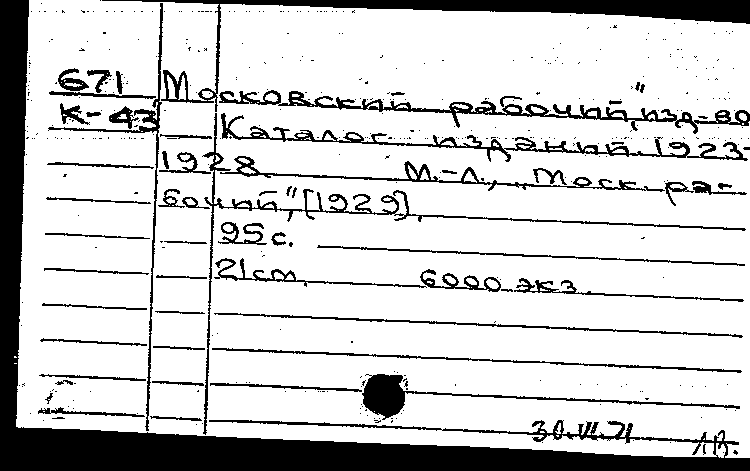 671 Московский рабочий", изд-во
К-43 Каталог изданий. 1923-
1928. М.-Л., „Моск. ра-
бочий", [1929].
95 с.
21 cm. 6000 экз.
30.VI.71 ЛВ.